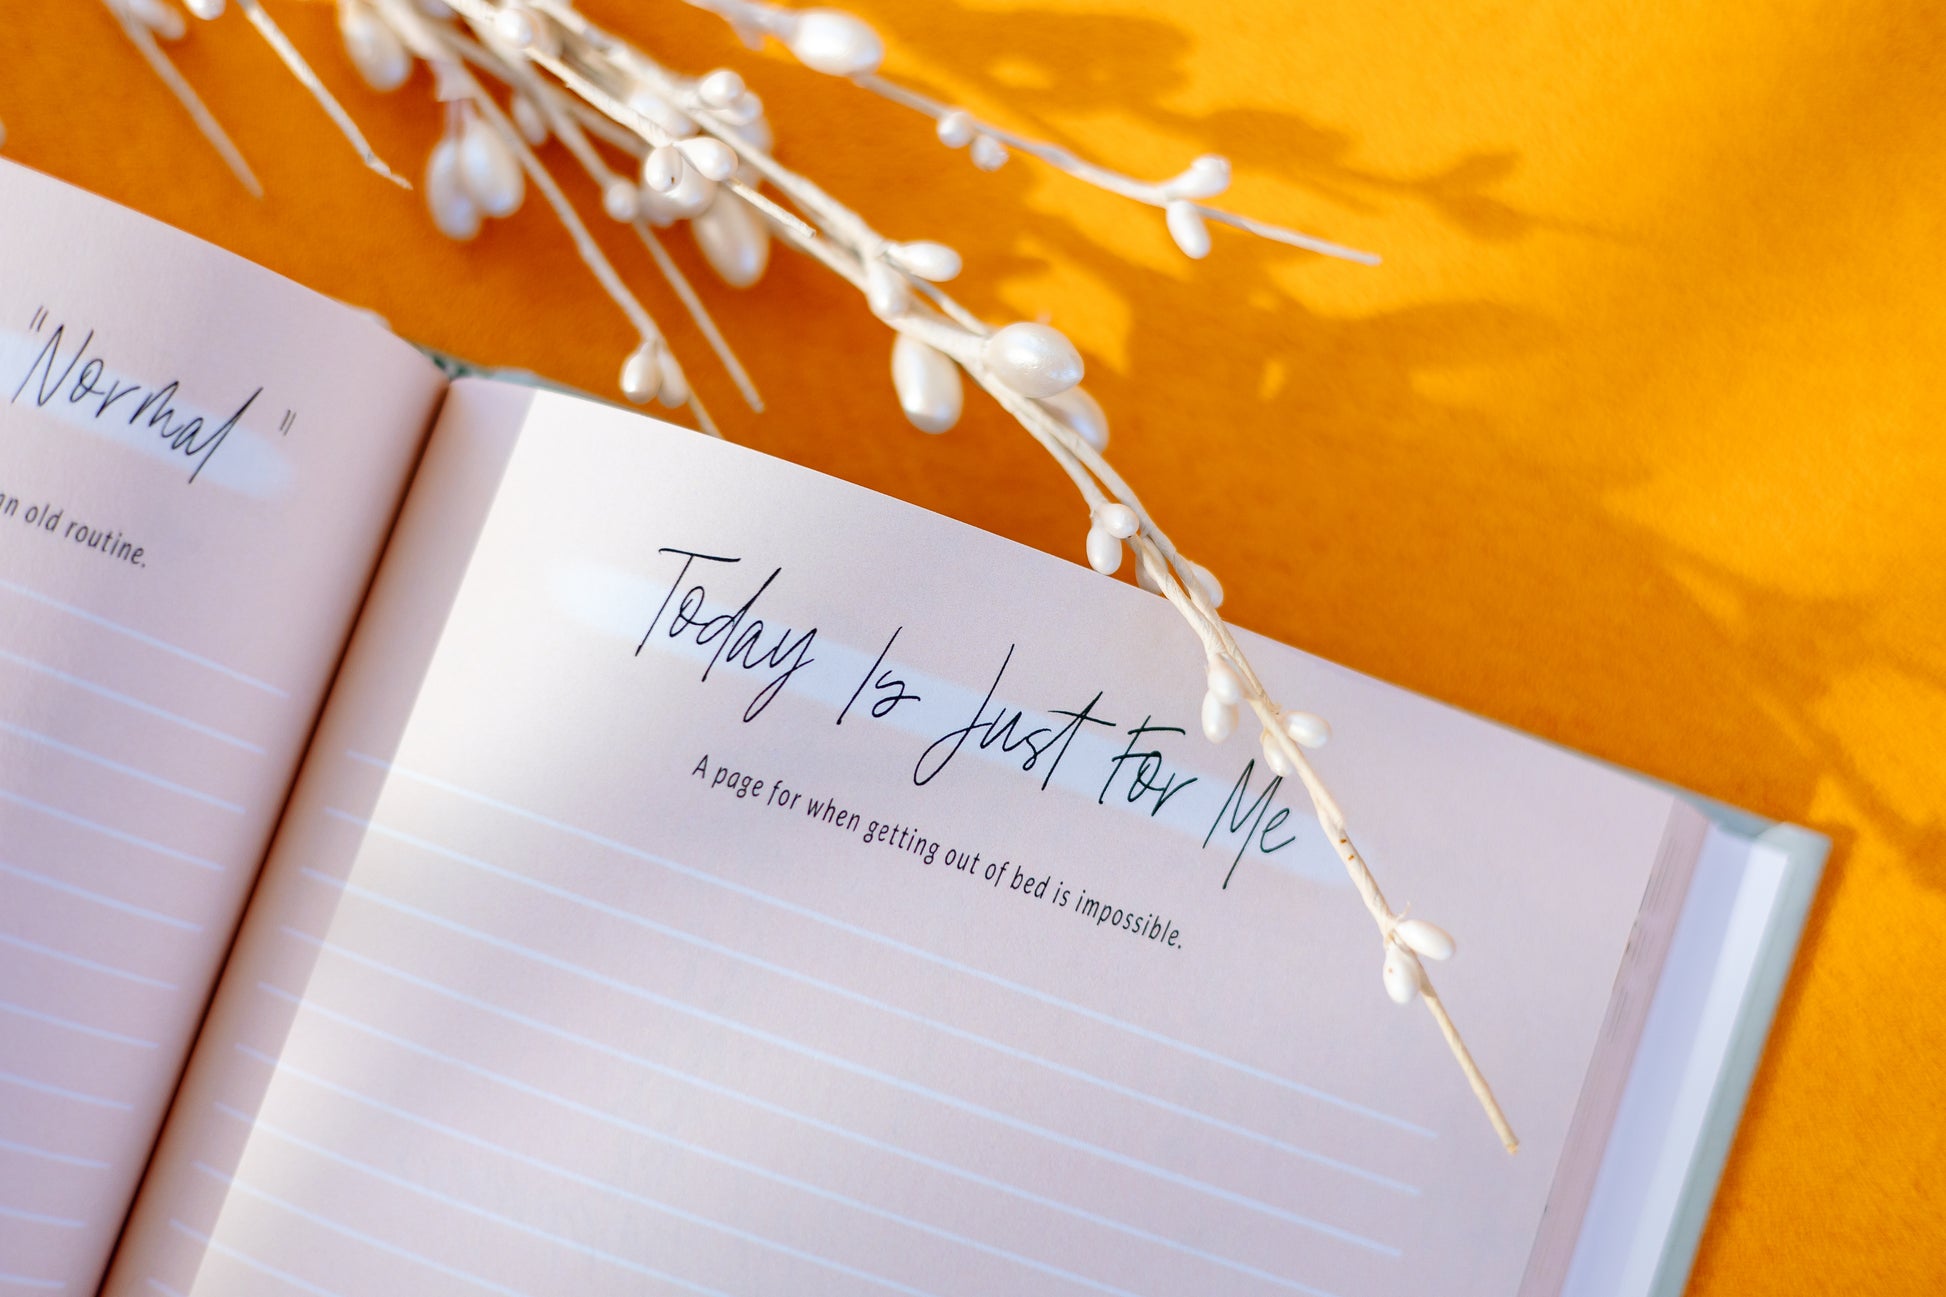 "Normal"
an old routine.
Today Is Just For Me
A page for when getting out of bed is impossible.